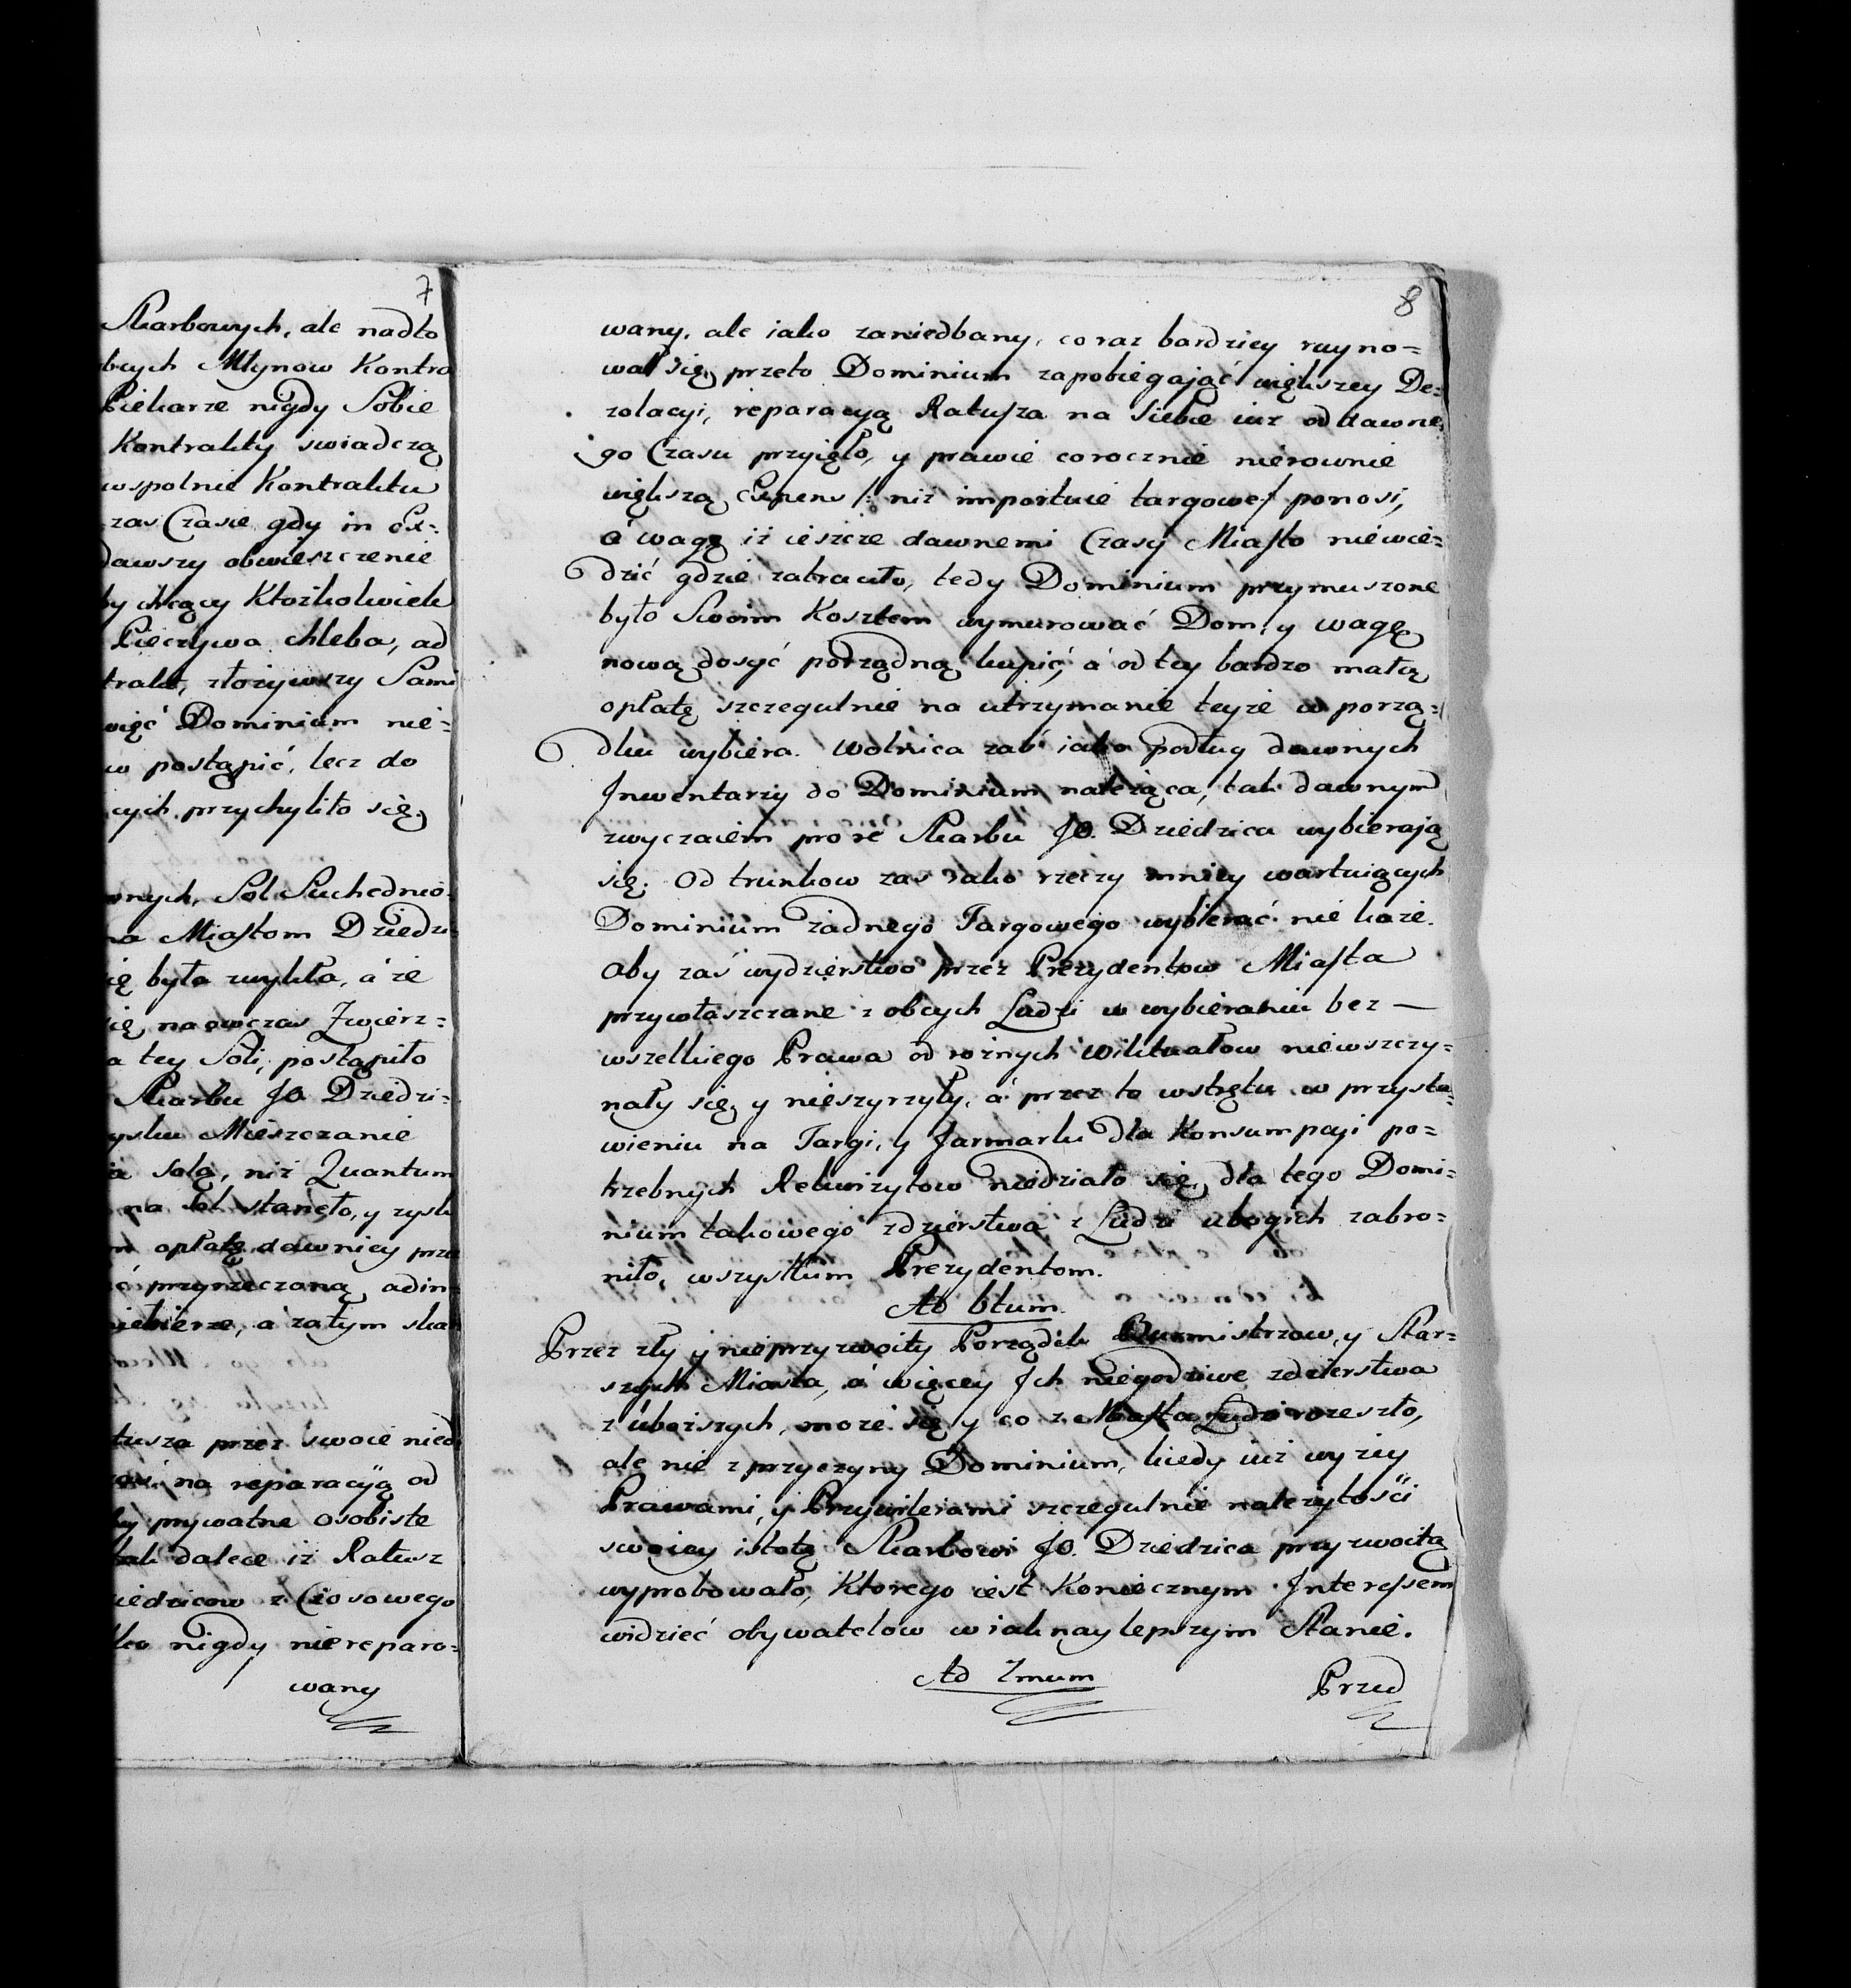 7
Skarbowych, ale nadto
bcych Młynow Kontra
Piekarze nigdy Sobie
Kontrakty swiadczą
wspolnie Kontraktu
zas Czasie gdy in Ex=
dawszy obwieszczenie
by chcący Ktożkolwiek
Pieczywa chleba, ad
trakt, złożywszy Sami
więć Dominium nie=
w postąpić, lecz do
cych przychyliło się.
wnych, Sol Suchednio=
na Miastom Dziedzi=
ię była zwykła, a że
ię naowczas Zwierz=
a tey Soli, postąpiło
Skarbu JO Dziedzi=
ysku Mieszczanie
a solą, niż Quantum
na Sol stanęło, y zysk
m opłatę dawniey prze
ć przyrzeczoną, adin=
niebierze, a zatym skar
tusza przez swoie nied
zaś na reparacyą od
by prywatne osobiste
tak dalece iż Ratusz
iedzicow z Ciosowego
lko nigdy niereparo=
wany
8
wany, ale iako zaniedbany, coraz bardziey ruyno=
wał się, przeto Dominium zapobiegaiąć większey De=
zolacyi, reparacyą Ratusza na siebie iuż od dawne
go Czasu przyięło, y prawie corocznie nierownie
większą Expens /: niż importuie targowe :/ ponosi,
á wagę iż ieszcze dawnemi Czasy Miasto niewie=
dzić gdzie zatraciło, tedy Dominium przymuszone
było Swoim Kosztem wymurować Dom, y wagę
nową dosyć porządną kupić, á od tey bardzo małą
opłatę szczegulnie na utrzymanie teyże w porzą=
dku wybiera. Wolnica zaś iako podług dawnych
Inwentarzy do Dominium należąca, tak dawnym
zwyczaiem pro re Skarbu JO. Dziedzica wybieraią
się. Od trunkow zas iako rzeczy mniey wartuiących
Dominium żadnego Targowego wybierać nie każe.
Aby zaś wydzierstwo przez Prezydentow Miasta
przywłaszczane z obcych Ludzi w wybieraniu bez —
wszelkiego Prawa od rożnych Wiktuałow niewszczy=
nały się, y nieszyrzyły, á przez to wstrętu w przysta=
wieniu na Targi, y Jarmarki dla Konsumpcyi po=
trzebnych Rekwizytow niedziało się, dla tego Domi=
nium takowego zdzierstwa z Ludzi ubogich zabro=
niło, wszystkim Prezydentom.
Ad 6tum.
Przez zły y nieprzyzwoity Porządek Burmistrzow, y Star=
szych Miasta, á więcey Jch niegodziwe zdzierstwa
z uboższych, może się y co z Miasta Ludzi rozeszło,
ale nie z przyczyny Dominium, kiedy iuż wyżey
Prawami, y Przywileiami szczegulnie należytości
swoiey istotę Skarbowi JO. Dziedzica przyzwoitą
wyprobowało, Ktorego iest Koniecznym Interessem
widzieć obywatelow w iak naylepszym Stanie.
Ad 7mum
Przed